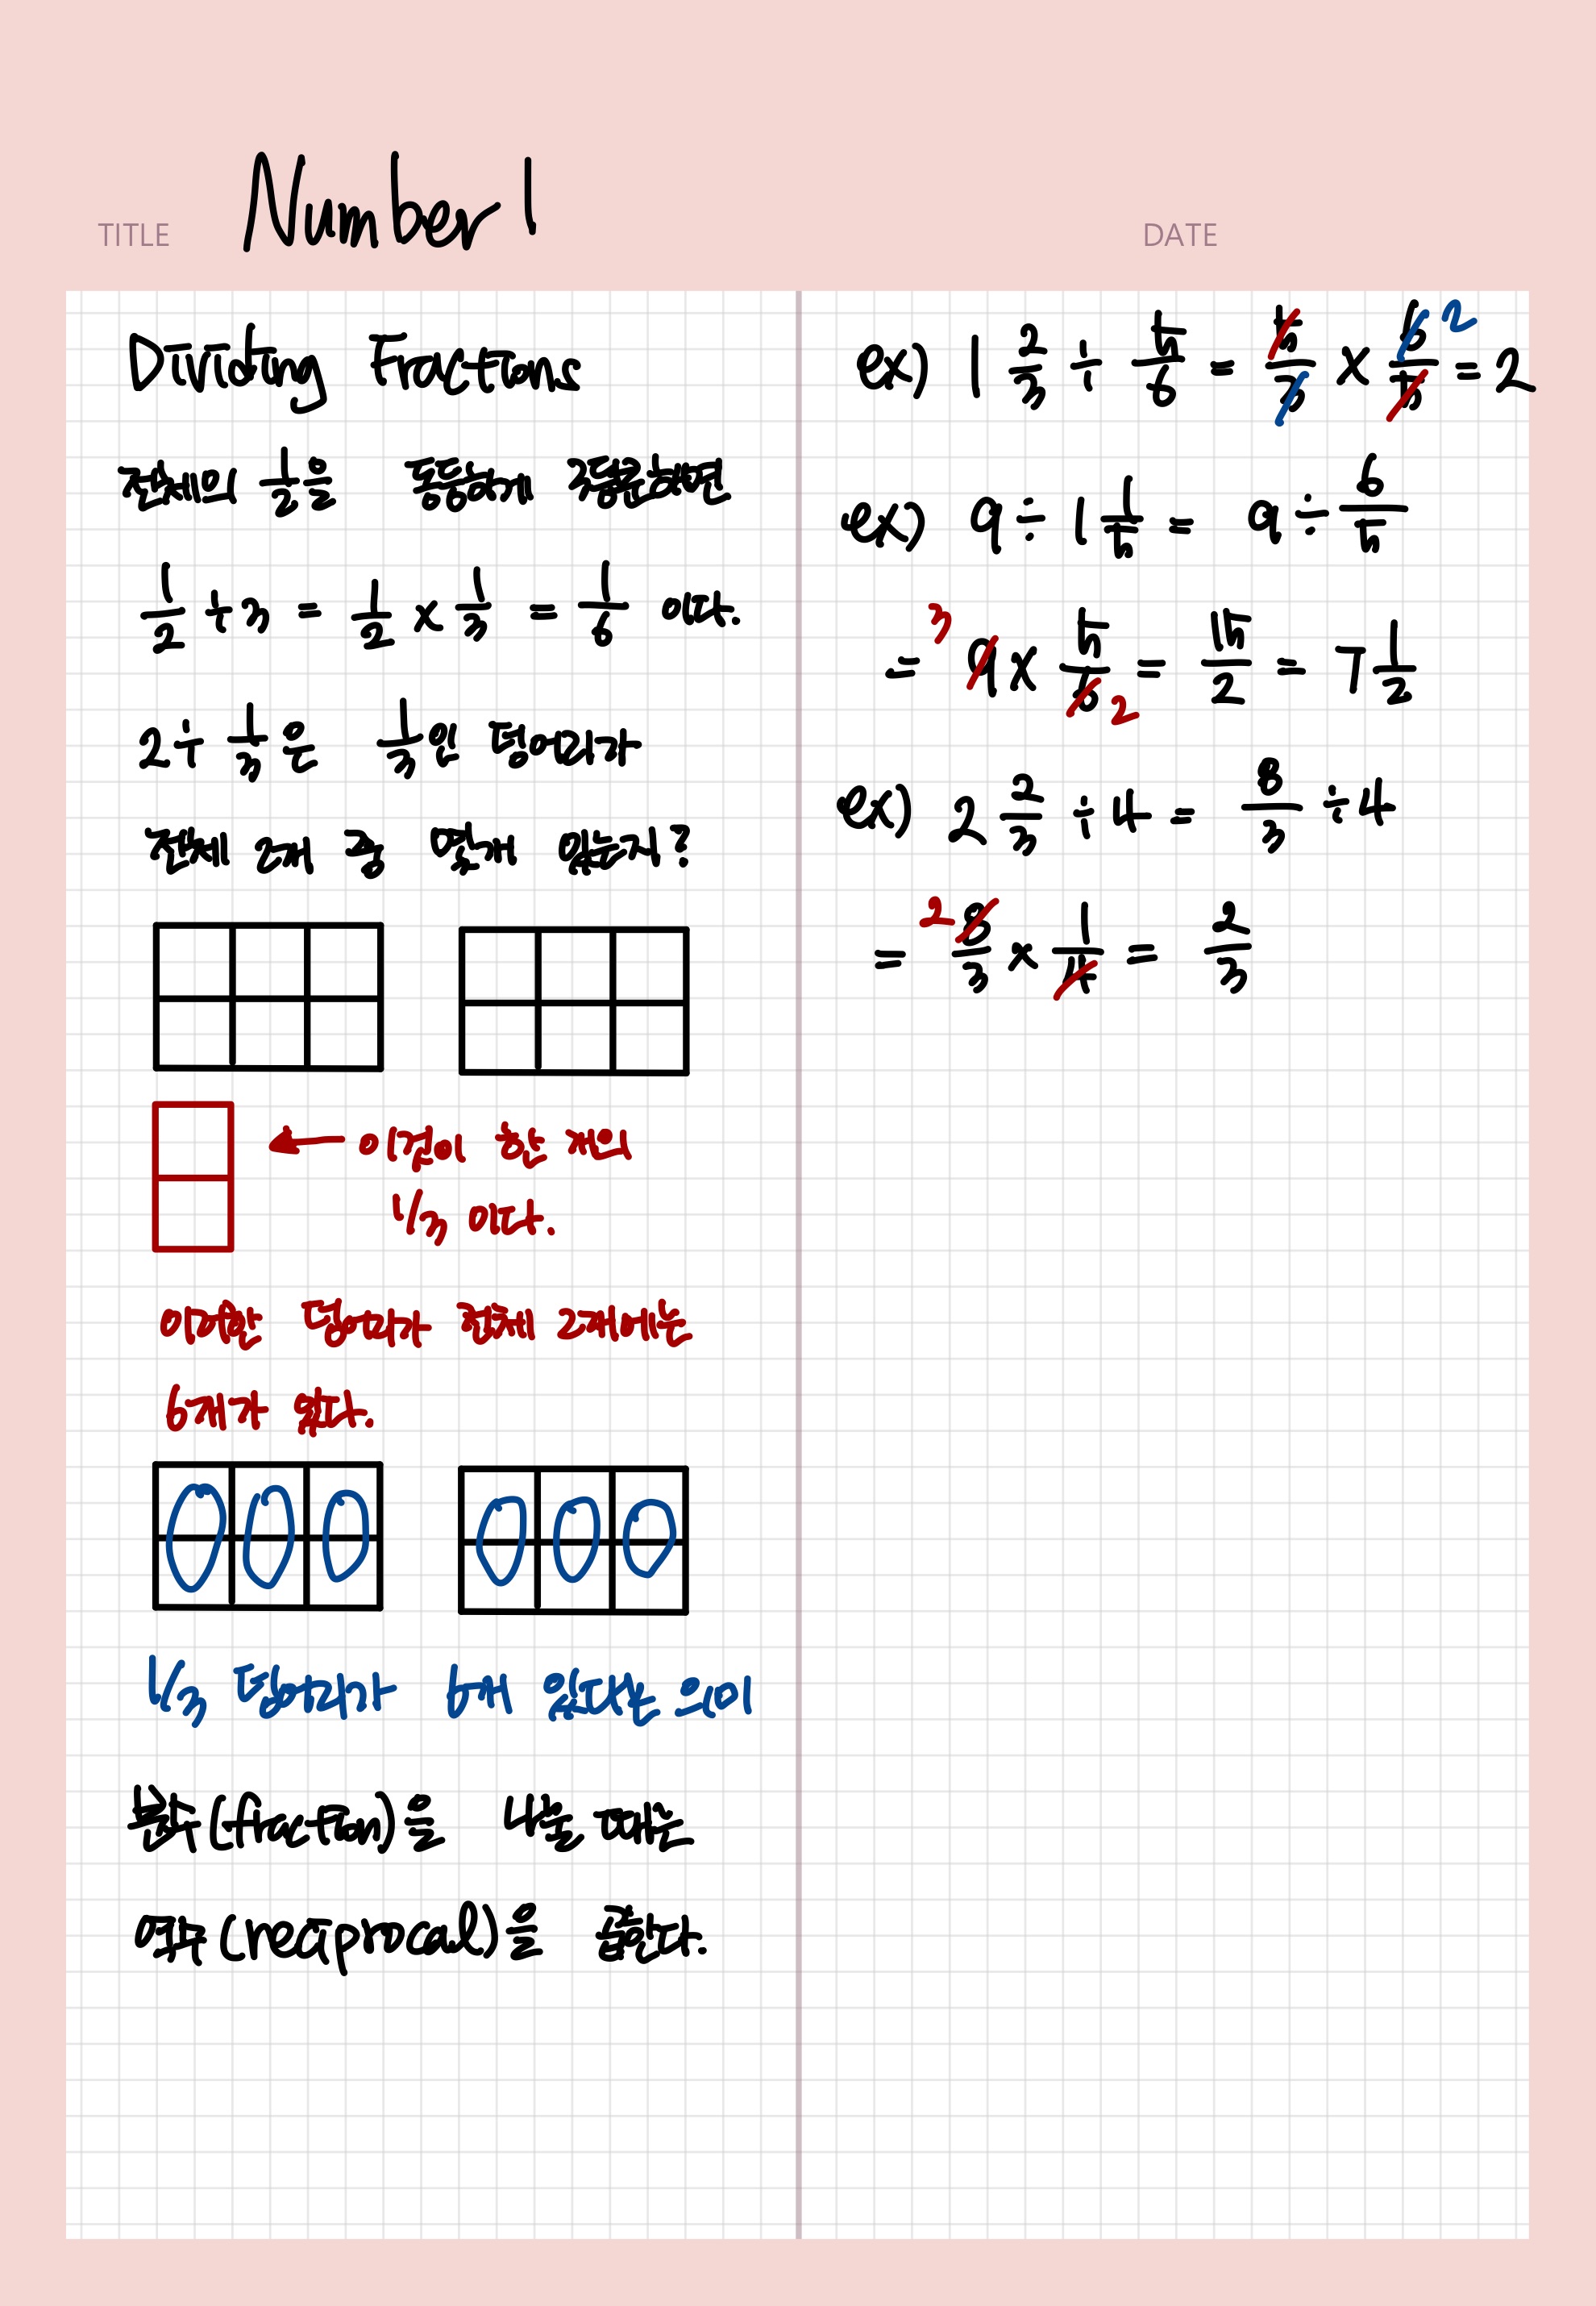 TITLE Number 1
DATE
Dividing Fractions
전체의 1/2을 동등하게 3등분하면
1/2 ÷ 3 = 1/2 × 1/3 = 1/6 이다.
2 ÷ 1/3은 1/3인 덩어리가
전체 2개 중 몇개 있는지?
← 이것이 한 개의
1/3 이다.
이러한 덩어리가 전체 2개에는
6개가 있다.
1/3 덩어리가 6개 있다는 의미
분수(fraction)을 나눌 때는
역수(reciprocal)을 곱한다.
ex) 1 2/3 ÷ 5/6 = 5/3 × 6/5 2 = 2
ex) 9 ÷ 1 1/5 = 9 ÷ 6/5
= 3 9 × 5/6 2 = 15/2 = 7 1/2
ex) 2 2/3 ÷ 4 = 8/3 ÷ 4
= 2 8/3 × 1/4 = 2/3